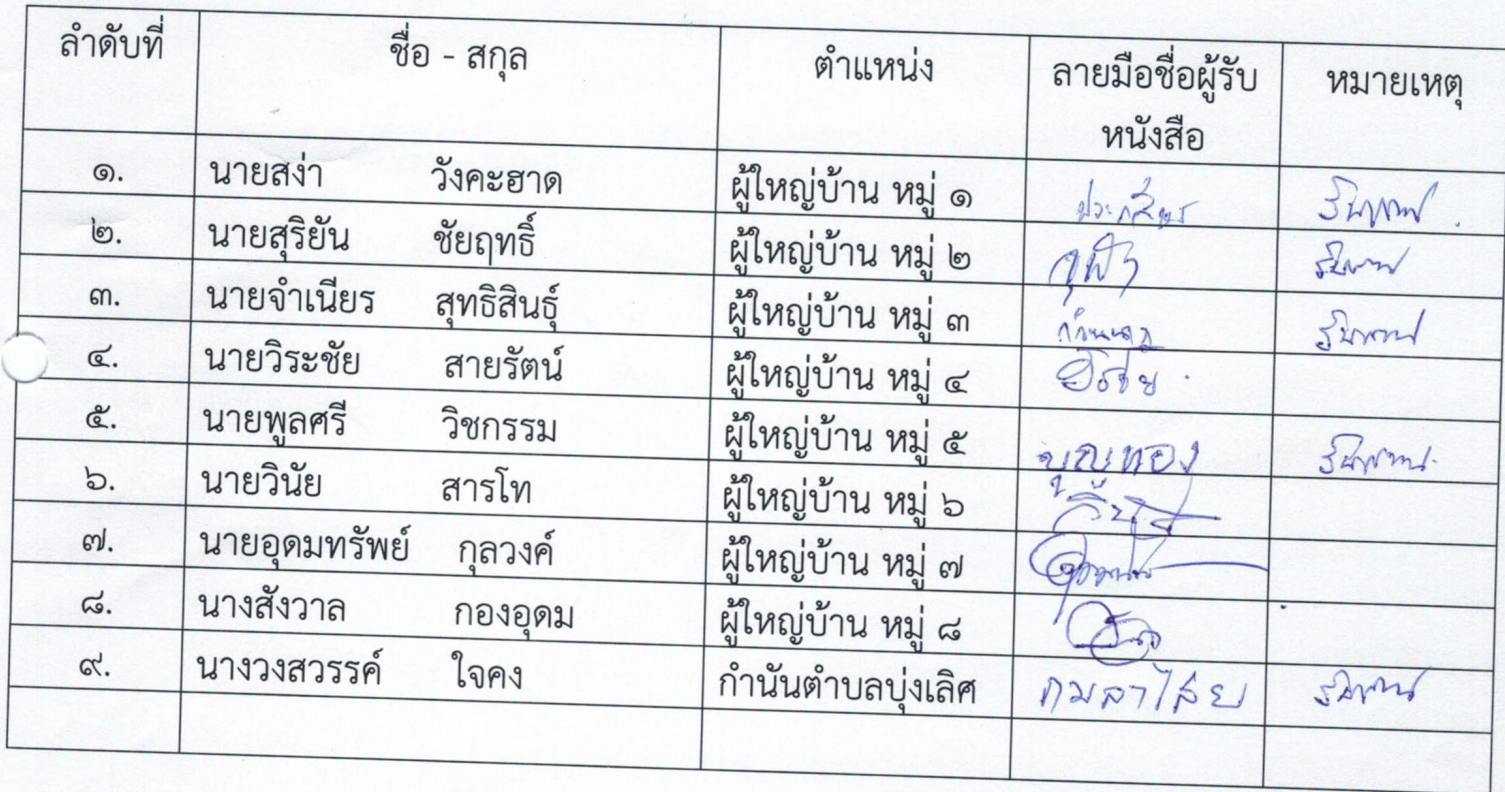 ลำดับที่ ชื่อ - สกุล ตำแหน่ง ลายมือชื่อผู้รับ หมายเหตุ
หนังสือ
๑. นายสง่า วังคะฮาด ผู้ใหญ่บ้าน หมู่ ๑
๒. นายสุริยัน ชัยฤทธิ์ ผู้ใหญ่บ้าน หมู่ ๒
๓. นายจำเนียร สุทธิสินธุ์ ผู้ใหญ่บ้าน หมู่ ๓
๔. นายวิระชัย สายรัตน์ ผู้ใหญ่บ้าน หมู่ ๔
๕. นายพูลศรี วิชกรรม ผู้ใหญ่บ้าน หมู่ ๕ บุญทอง
๖. นายวินัย สารโท ผู้ใหญ่บ้าน หมู่ ๖
๗. นายอุดมทรัพย์ กุลวงค์ ผู้ใหญ่บ้าน หมู่ ๗
๘. นางสังวาล กองอุดม ผู้ใหญ่บ้าน หมู่ ๘
๙. นางวงสวรรค์ ใจคง กำนันตำบลบุ่งเลิศ กมลาไสย